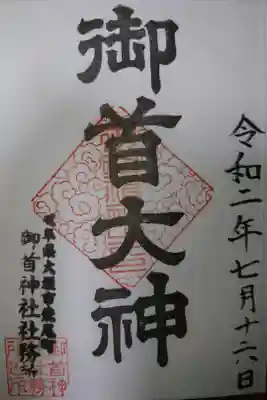 令和二年七月十六日
御首大神
岐阜県大垣市荒尾町
御首神社社務所